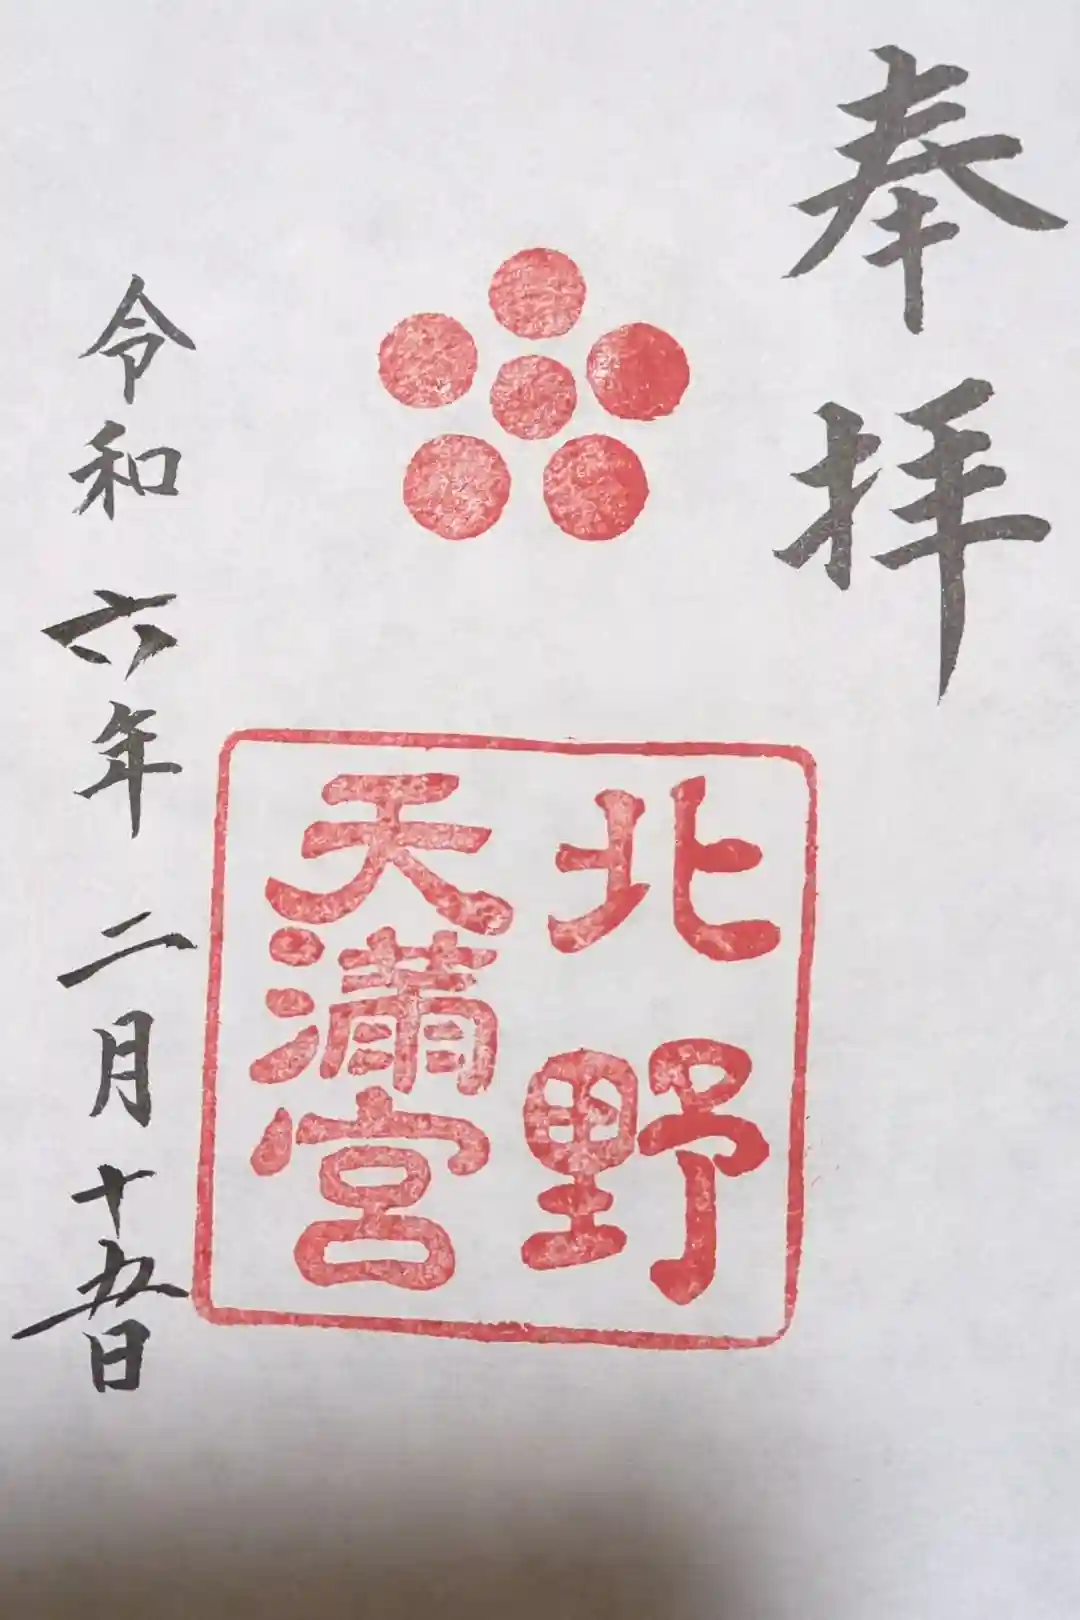 奉拝
北野
天満宮
令和六年二月十五日